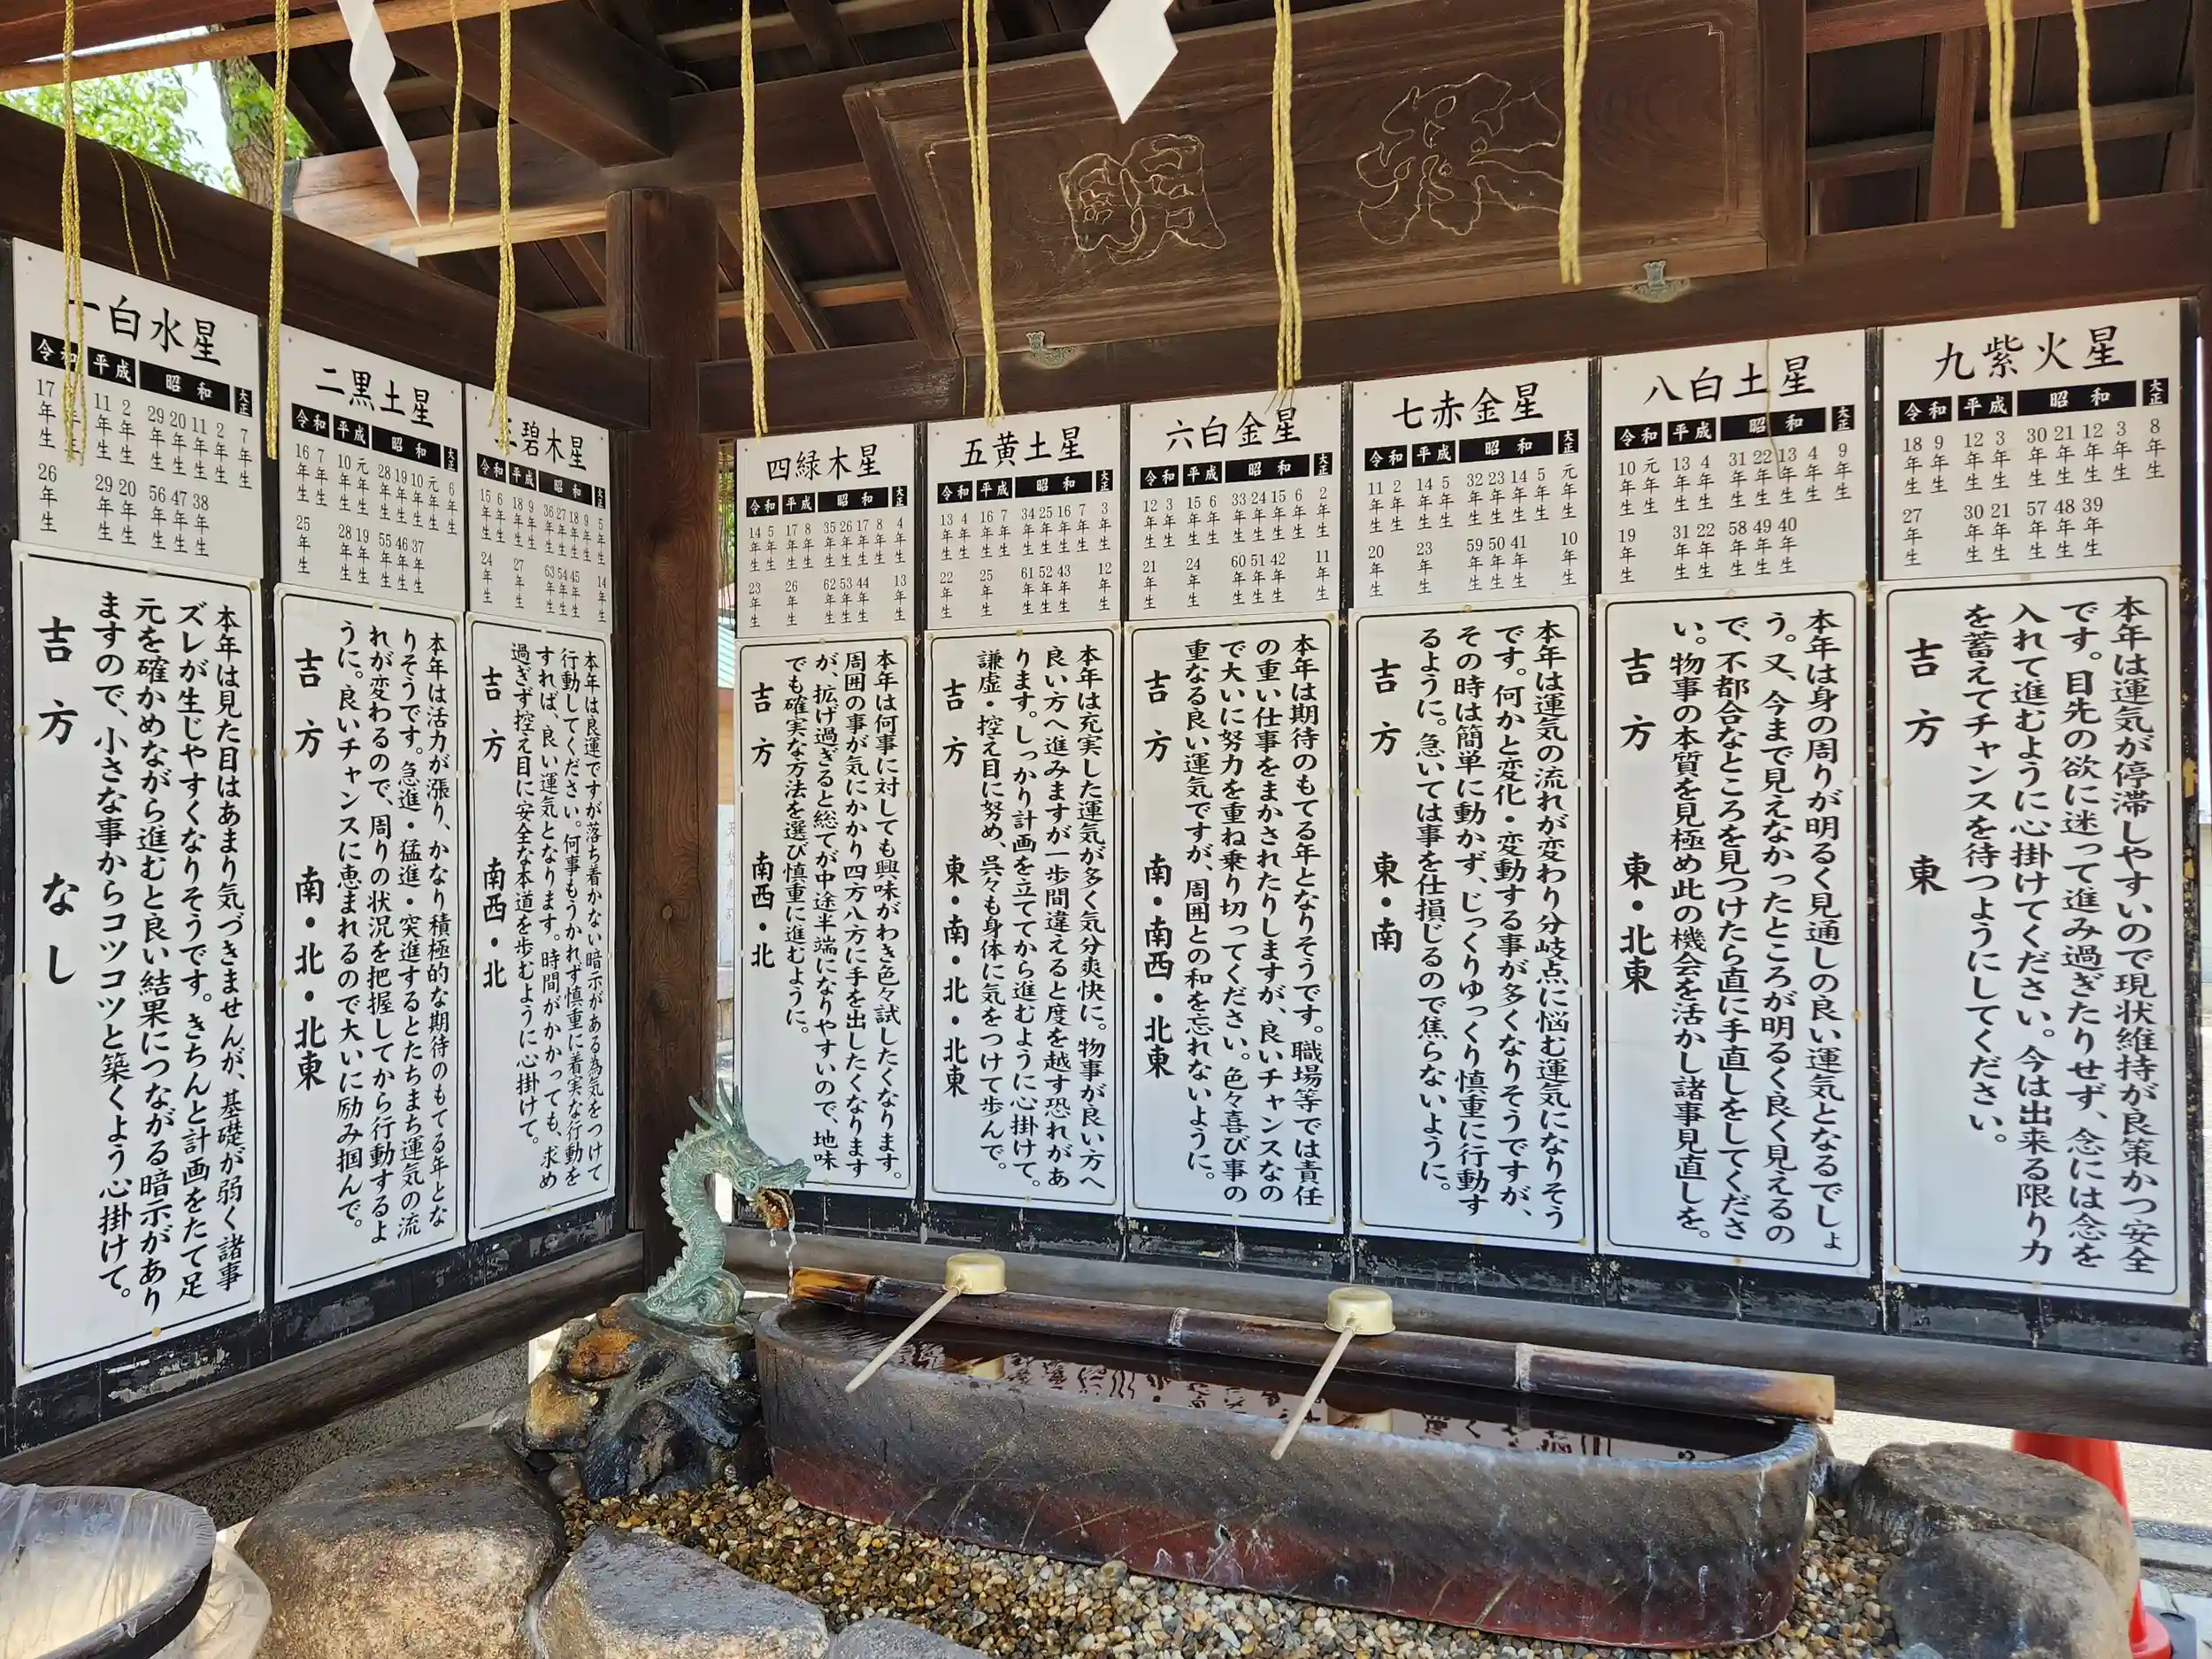 一白水星
令和
平成
昭和
大正
17年生
11年生
2年生
29年生
20年生
11年生
2年生
7年生
26年生
29年生
20年生
56年生
47年生
38年生
本年は見た目はあまり気づきませんが、基礎が弱く諸事
ズレが生じやすくなりそうです。きちんと計画をたて足
元を確かめながら進むと良い結果につながる暗示があり
ますので、小さな事からコツコツと築くよう心掛けて。
吉方 なし
二黒土星
令和
平成
昭和
大正
16年生
7年生
10年生
元年生
28年生
19年生
10年生
元年生
6年生
25年生
28年生
19年生
55年生
46年生
37年生
本年は活力が漲り、かなり積極的な期待のもてる年とな
りそうです。急進・猛進・突進するとたちまち運気の流
れが変わるので、周りの状況を把握してから行動するよ
うに。良いチャンスに恵まれるので大いに励み掴んで。
吉方 南・北・北東
三碧木星
令和
平成
昭和
大正
15年生
6年生
18年生
9年生
36年生
27年生
18年生
9年生
5年生
24年生
27年生
63年生
54年生
45年生
14年生
本年は良運ですが落ち着かない暗示がある為気をつけて
行動してください。何事もうかれず慎重に着実な行動を
すれば、良い運気となります。時間がかかっても、求め
過ぎず控え目に安全な本道を歩むように心掛けて。
吉方 南西・北
四緑木星
令和
平成
昭和
大正
14年生
5年生
17年生
8年生
35年生
26年生
17年生
8年生
4年生
23年生
26年生
62年生
53年生
44年生
13年生
本年は何事に対しても興味がわき色々試したくなります。
周囲の事が気にかかり四方八方に手を出したくなります
が、拡げ過ぎると総てが中途半端になりやすいので、地味
でも確実な方法を選び慎重に進むように。
吉方 南西・北
五黄土星
令和
平成
昭和
大正
13年生
4年生
16年生
7年生
34年生
25年生
16年生
7年生
3年生
22年生
25年生
61年生
52年生
43年生
12年生
本年は充実した運気が多く気分爽快に。物事が良い方へ
良い方へ進みますが一歩間違えると度を越す恐れがあ
ります。しっかり計画を立ててから進むように心掛けて。
謙虚・控え目に努め、呉々も身体に気をつけて歩んで。
吉方 東・南・北・北東
六白金星
令和
平成
昭和
大正
12年生
3年生
15年生
6年生
33年生
24年生
15年生
6年生
2年生
21年生
24年生
60年生
51年生
42年生
11年生
本年は期待のもてる年となりそうです。職場等では責任
の重い仕事をまかされたりしますが、良いチャンスなの
で大いに努力を重ね乗り切ってください。色々喜び事の
重なる良い運気ですが、周囲との和を忘れないように。
吉方 南・南西・北東
七赤金星
令和
平成
昭和
大正
11年生
2年生
14年生
5年生
32年生
23年生
14年生
5年生
元年生
20年生
23年生
59年生
50年生
41年生
10年生
本年は運気の流れが変わり分岐点に悩む運気になりそう
です。何かと変化・変動する事が多くなりそうですが、
その時は簡単に動かず、じっくりゆっくり慎重に行動す
るように。急いては事を仕損じるので焦らないように。
吉方 東・南
八白土星
令和
平成
昭和
大正
10年生
元年生
13年生
4年生
31年生
22年生
13年生
4年生
9年生
19年生
31年生
22年生
58年生
49年生
40年生
本年は身の周りが明るく見通しの良い運気となるでしょ
う。又、今まで見えなかったところが明るく良く見えるの
で、不都合なところを見つけたら直に手直しをしてくださ
い。物事の本質を見極め此の機会を活かし諸事見直しを。
吉方 東・北東
九紫火星
令和
平成
昭和
大正
18年生
9年生
12年生
3年生
30年生
21年生
12年生
3年生
8年生
27年生
30年生
21年生
57年生
48年生
39年生
本年は運気が停滞しやすいので現状維持が良策かつ安全
です。目先の欲に迷って進み過ぎたりせず、念には念を
入れて進むように心掛けてください。今は出来る限り力
を蓄えてチャンスを待つようにしてください。
吉方 東